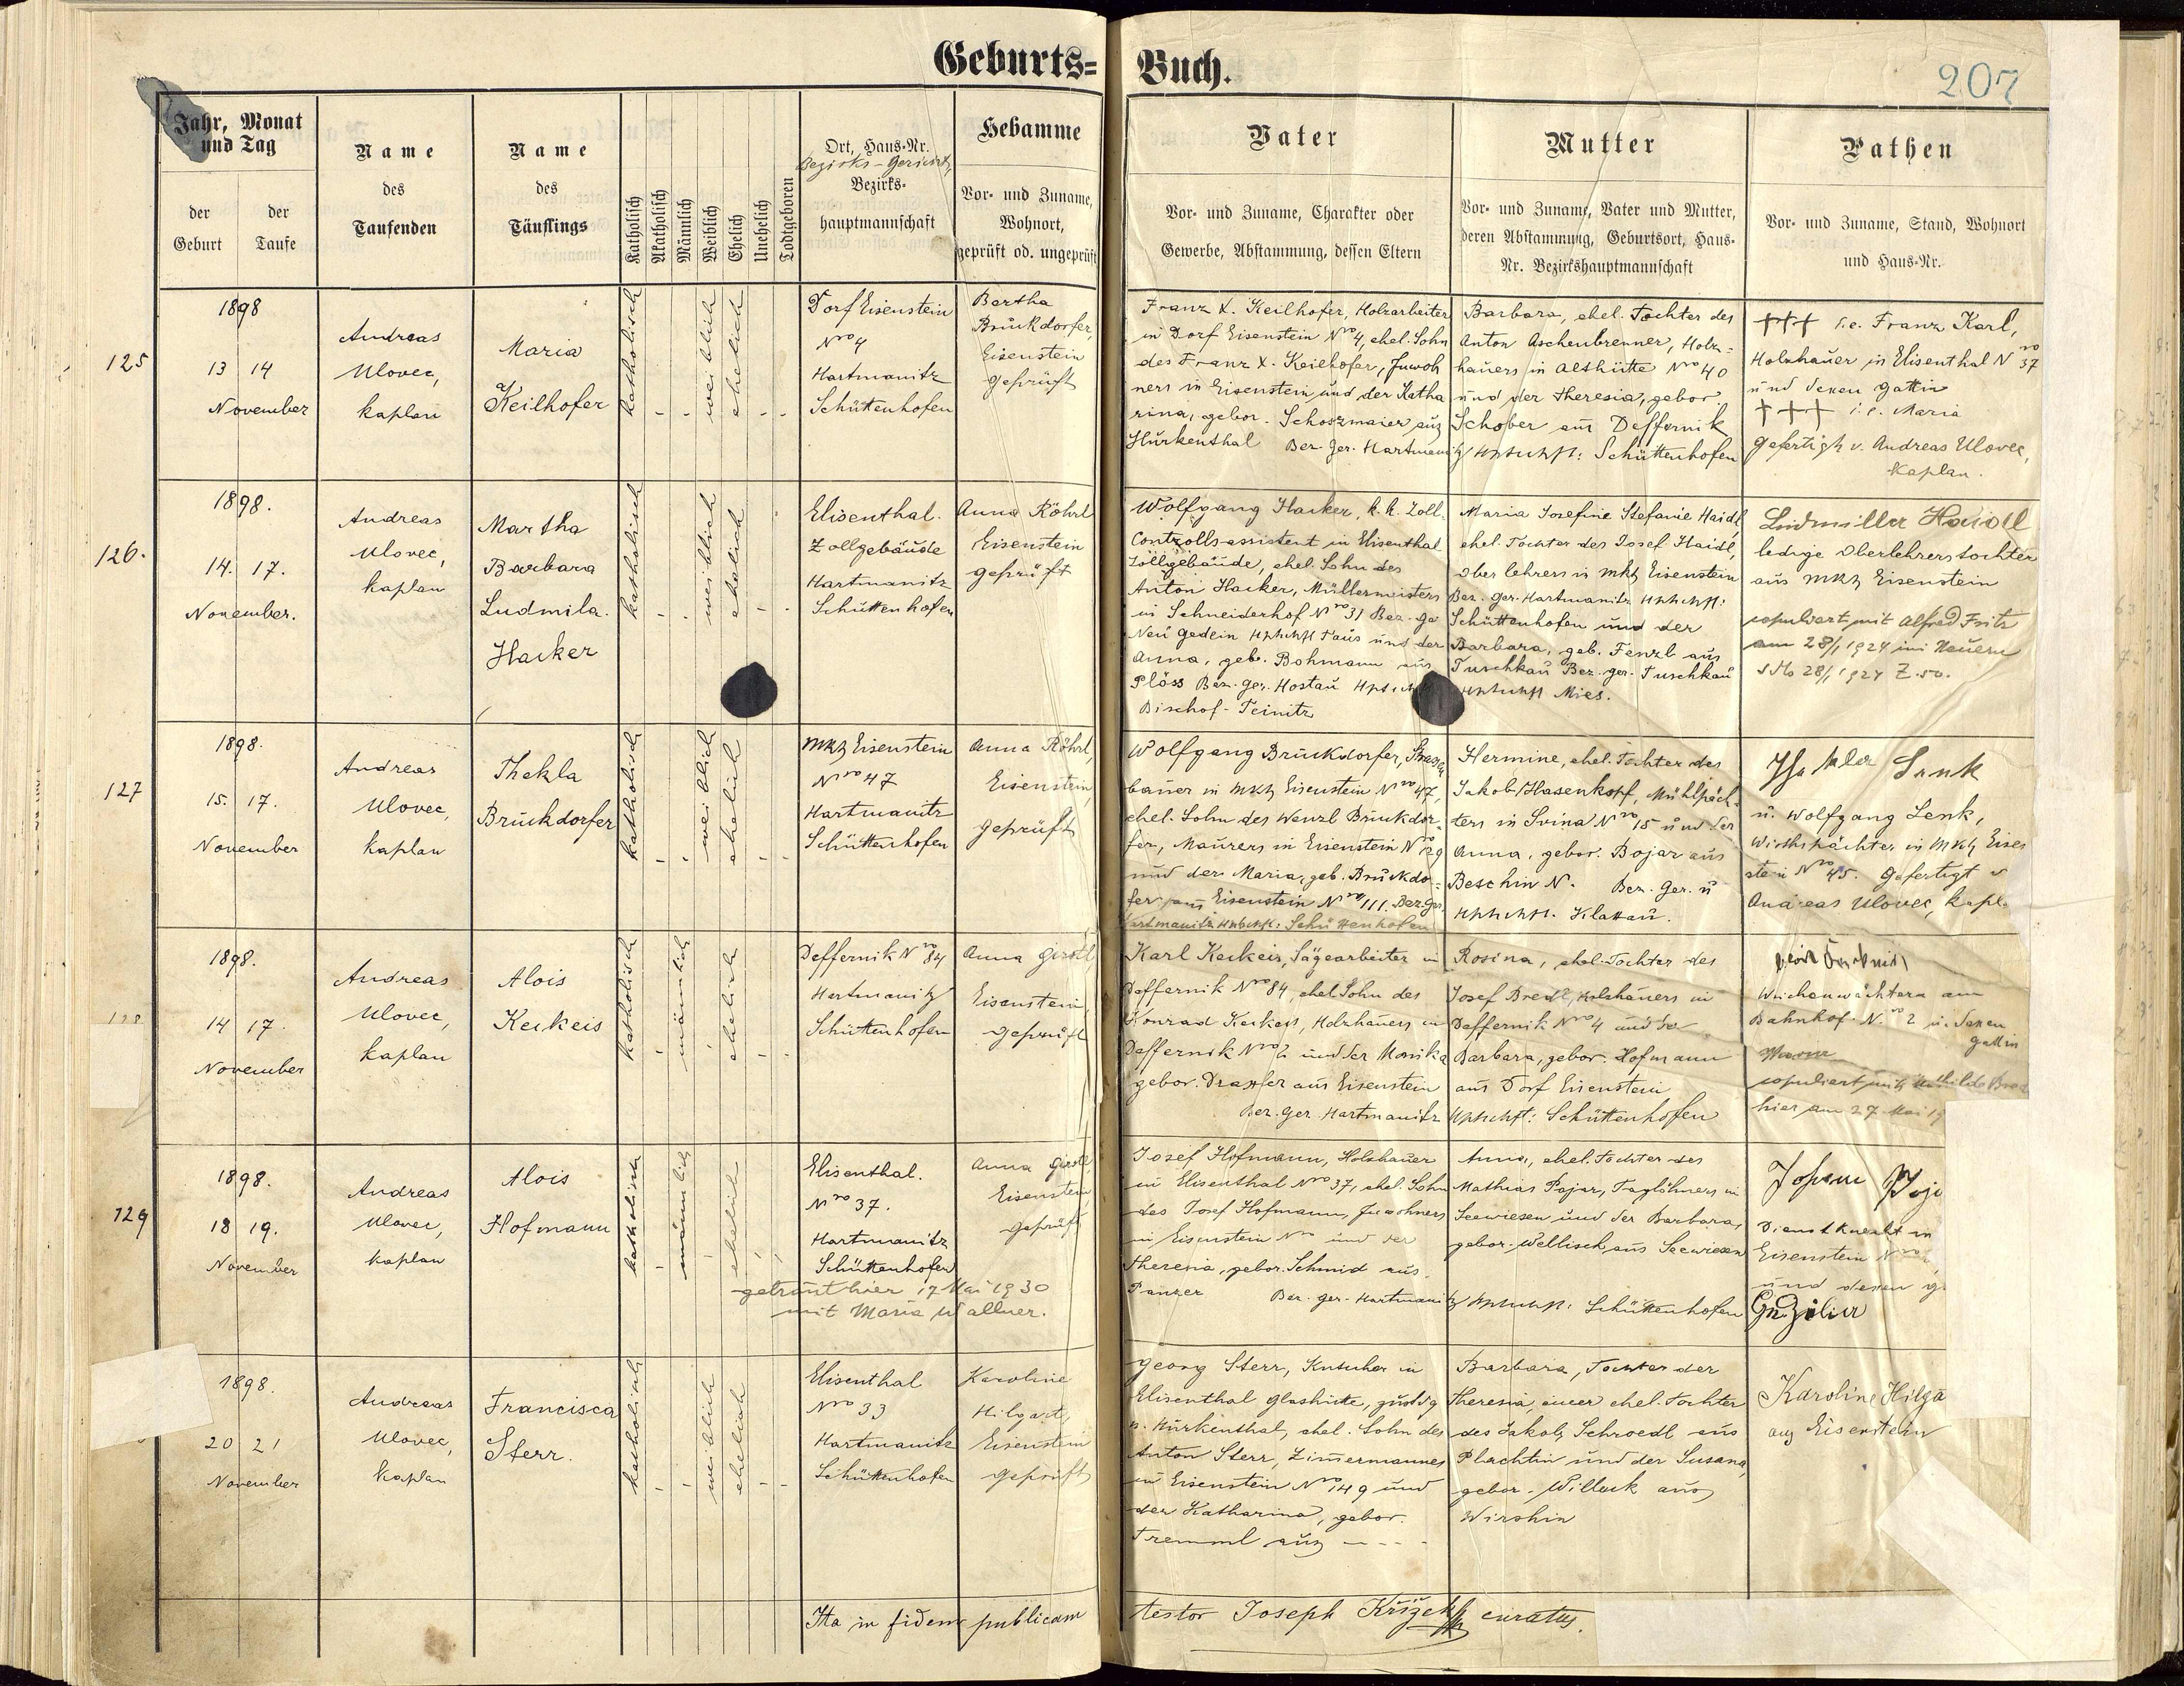 Geburts=Buch.
207
Jahr, Monat und Tag
der Geburt
der Taufe
Name des Taufenden
Name des Täuflings
Katholisch
Akatholisch
Männlich
Weiblich
Ehelich
Unehelich
Todtgeboren
Ort, Haus-Nr.
Bezirks-Gericht,
Bezirks-
hauptmannschaft
Hebamme
Vor- und Zuname,
Wohnort,
geprüft od. ungeprüft
Vater
Vor- und Zuname, Charakter oder
Gewerbe, Abstammung, dessen Eltern
Mutter
Vor- und Zuname, Vater und Mutter,
deren Abstammung, Geburtsort, Haus-
Nr. Bezirkshauptmannschaft
Pathen
Vor- und Zuname, Stand, Wohnort
und Haus-Nr.
125
1898
13 14
November
Andreas
Ulovec,
kaplan
Maria
Keilhofer
katholisch
weiblich
ehelich
Dorf Eisenstein
Nro 4
Hartmanitz
Schüttenhofen
Bertha
Brückdorfer,
Eisenstein
geprüft
Franz X. Keilhofer, Holzarbeiter
in Dorf Eisenstein Nro 4, ehel. Sohn
des Franz X. Keilhofer, Inwoh
ners in Eisenstein und der Katha
rina, gebor. Schoszmaier aus
Hurkenthal Bez. Ger. Hartmanitz
Barbara, ehel. Tochter des
Anton Aschenbrenner, Holz=
hauers in Althütte Nro 40
und der Theresia, gebor.
Schober aus Deffernik
Hptschft: Schüttenhofen
+++ i.e. Franz Karl,
Holzhauer in Elisenthal Nro 37
und dessen Gattin
+++ i.e. Maria
gefertigt v. Andreas Ulovec,
Kaplan.
126.
1898.
14. 17.
November.
Andreas
Ulovec,
kaplan
Martha
Barbara
Ludmila.
Hacker
katholisch
weiblich
ehelich
Elisenthal.
Zollgebäude
Hartmanitz
Schüttenhofen
Anna Röhrl
Eisenstein
geprüft
Wolfgang Hacker, k. k. Zoll.
Controllsassistent in Elisenthal
Zollgebäude, ehel. Sohn des
Anton Hacker, Müllermeisters
in Schneiderhof Nro 31 Bez. Ge
Neugedein Hptschft Taus und der
Anna, geb. Bohmann aus
Plöss Bez. Ger. Hostau
Bischof-Teinitz
Maria Josefine Stefanie Haidl,
ehel. Tochter des Josef Haidl,
Oberlehrers in Mkt Eisenstein
Bez. Ger. Hartmanitz Hptschft:
Schüttenhofen und der
Barbara, geb. Fenzl aus
Tuschkau Bez. Ger. Tuschkau
Hptschft Mies.
Haidl
ledige Oberlehrerstochter
aus Mkt Eisenstein
copuliert mit Alfred Fritz
am 28/1 1924 in Neuern
28/1 1924 Z. 50.
127
1898.
15. 17.
November
Andreas
Ulovec,
kaplan
Thekla
Brückdorfer
katholisch
weiblich
ehelich
Mkt Eisenstein
Nro 47
Hartmanitz
Schüttenhofen
Anna Röhrl,
Eisenstein,
geprüft
Wolfgang Brückdorfer,
bauer in Mkt Eisenstein Nro 47,
ehel. Sohn des Wenzl Brückdor=
fer, Maurers in Eisenstein Nro 29
und der Maria, geb. Brückdo=
fer aus Eisenstein Nro 111. Bez. Ger.
Hartmanitz Hptschft: Schüttenhofen
Hermine, ehel. Tochter des
Jakob Hasenkopf, Mühlpäch=
ters in Svina Nro 15 und der
Anna, gebor. Bojar aus
Beschin N. Bez. Ger. u
Hptschft. Klattau.
Thekla Lenk
u. Wolfgang Lenk,
Wirthspächter in Mkt Eisen
stein Nro 45. Gefertigt v
Andreas Ulovec, kapl.
1898.
14 17.
November
Andreas
Ulovec,
kaplan
Alois
Keckeis
katholisch
männlich
ehelich
Deffernik Nro 84
Hartmanitz
Schüttenhofen
Anna Girstl
Eisenstein
geprüft
Karl Keckeis, Sägearbeiter in
Deffernik Nro 84, ehel. Sohn des
Konrad Keckeis, Holzhauers in
Deffernik Nro 2 und der Monika
gebor. Draxler aus Eisenstein
Bez. Ger. Hartmanitz
Rosina, ehel. Tochter des
Josef Bredl, Holzhauers in
Deffernik Nro 4 und der
Barbara, gebor. Hofmann
aus Dorf Eisenstein
Hptschft: Schüttenhofen
Weichenwächters am
Bahnhof. Nro 2 u. dessen
Gattin
copuliert mit
hier am 27. Mai 19
129
1898.
18 19.
November
Andreas
Ulovec,
kaplan
Alois
Hofmann
katholisch
männlich
ehelich
Elisenthal.
Nro 37.
Hartmanitz
Schüttenhofen
getraut hier 17. Mai 1930
mit Maria Wallner.
Anna Girstl
Eisenstein
geprüft
Josef Hofmann, Holzhauer
in Elisenthal Nro 37, ehel. Sohn
des Josef Hofmann, Inwohners
in Eisenstein Nro und der
Theresia, gebor. Schmid aus
Panzer Bez. Ger. Hartmanitz
Anna, ehel. Tochter des
Mathias Pojar, Taglöhners in
Seewiesen und der Barbara,
gebor. Wellisch aus Seewiesen
Hptschft: Schüttenhofen
Johann Poja
Dienstknecht in
Eisenstein Nro
und dessen G
1898.
20 21
November
Andreas
Ulovec,
kaplan
Francisca
Sterr.
katholisch
weiblich
ehelich
Elisenthal
Nro 33
Hartmanitz
Schüttenhofen
Karoline
Hilgart,
Eisenstein
geprüft
Georg Sterr, Kutscher in
Elisenthal Glashütte, zustdg
n. Hurkenthal, ehel. Sohn des
Anton Sterr, Zimermannes
in Eisenstein Nro 149 und
der Katharina, gebor.
Tremml aus - - - -
Barbara, Tochter der
Theresia, einer ehel. Tochter
des Jakob Schroedl aus
Plachtin und der Susana,
gebor. Willack aus
Wirschin
Karoline Hilga
aus Eisenstein
Ita in fidem publicam testor Joseph Křížek curatus.